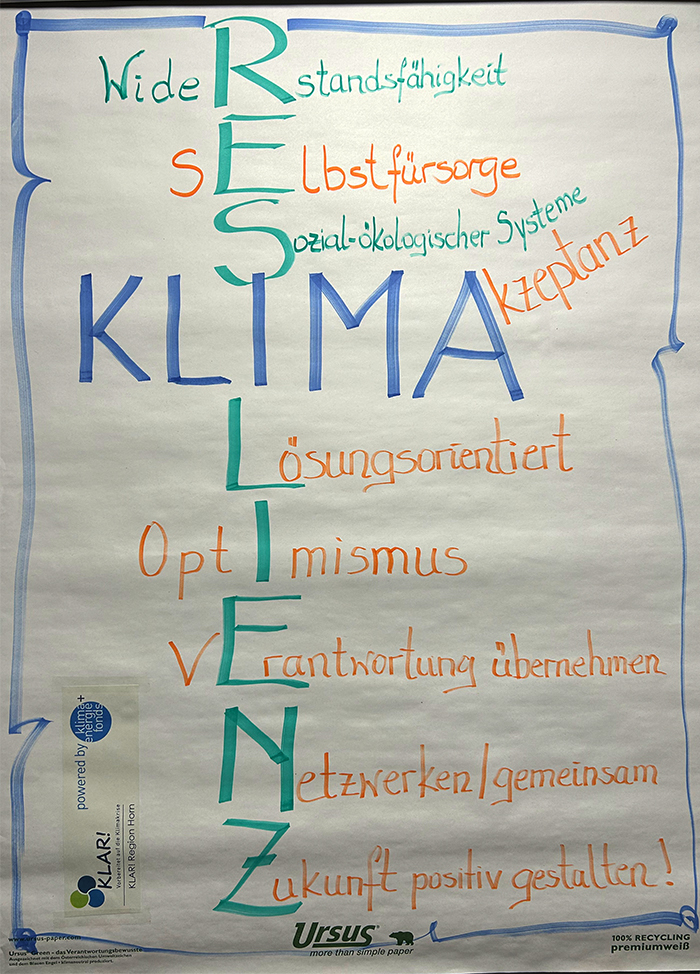 WideRstandsfähigkeit
SElbstfürsorge
Sozial-ökologischer Systeme
KLIMAkzeptanz
Lösungsorientiert
OptImismus
VErantwortung übernehmen
Netzwerken/gemeinsam
Zukunft positiv gestalten!
powered by klima+ energie fonds
KLAR!
Vorbereitet auf die Klimakrise
KLAR! Region Horn
www.ursus-paper.com
Ursus Green - das Verantwortungsbewusste
Ausgezeichnet mit dem Österreichischen Umweltzeichen
und dem Blauen Engel • klimaneutral produziert.
Ursus®
more than simple paper
100% RECYCLING
premiumweiß